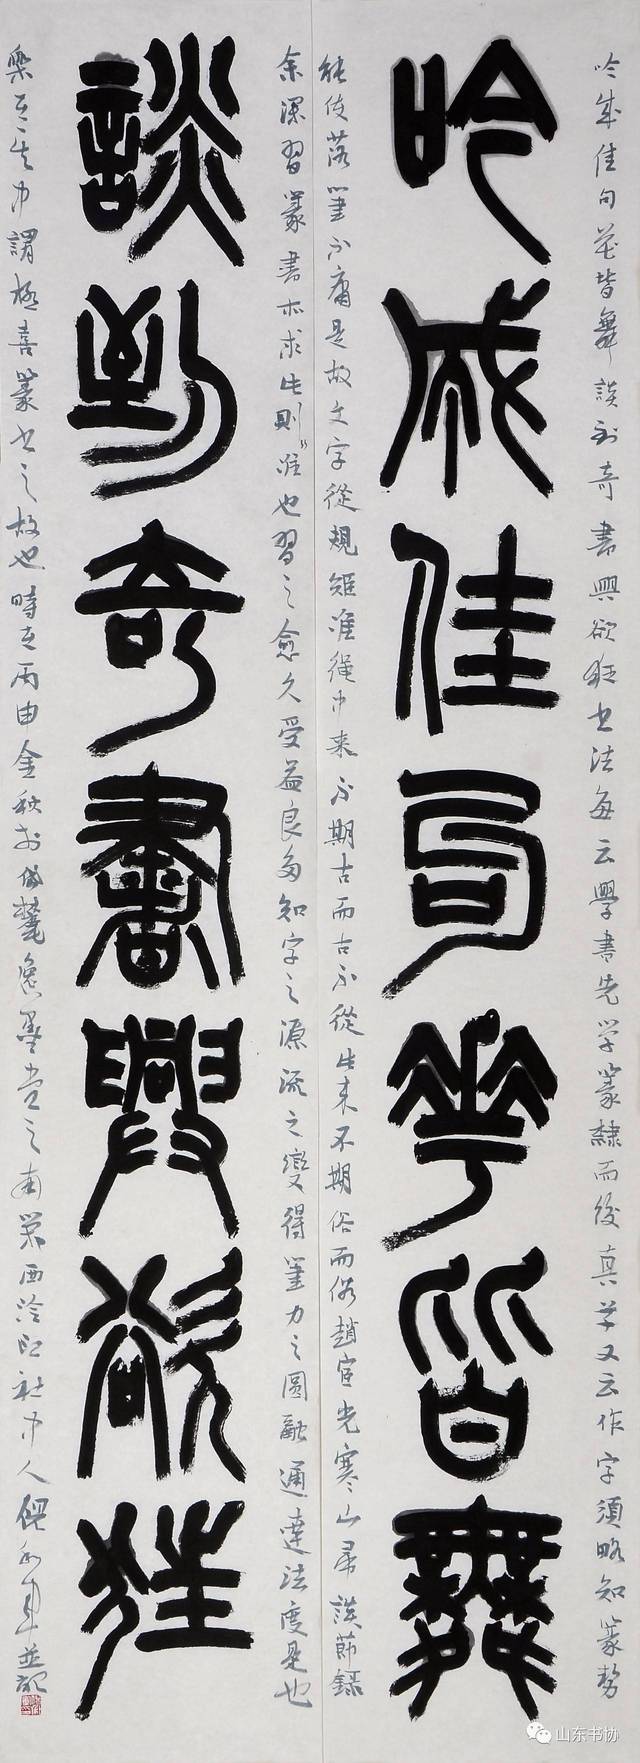 吟成佳句花皆舞談到奇書興欲狂書法每云學書先学篆隸而後真草又云作字須略知篆勢
吟成佳句華皆舞
能使落筆不庸是故文字從規矩准繩中來不期古而古不從此來不期俗而俗趙宧光寒山帚談節錄
余深習篆書亦求此則准也習之愈久受益良多知字之源流之變得筆力之圓融通達法度是也
談到奇書興欲狂
樂在其中謂極喜篆書之故也時在丙申金秋於
墨堂之南
西泠印社中人
並記
山东书协